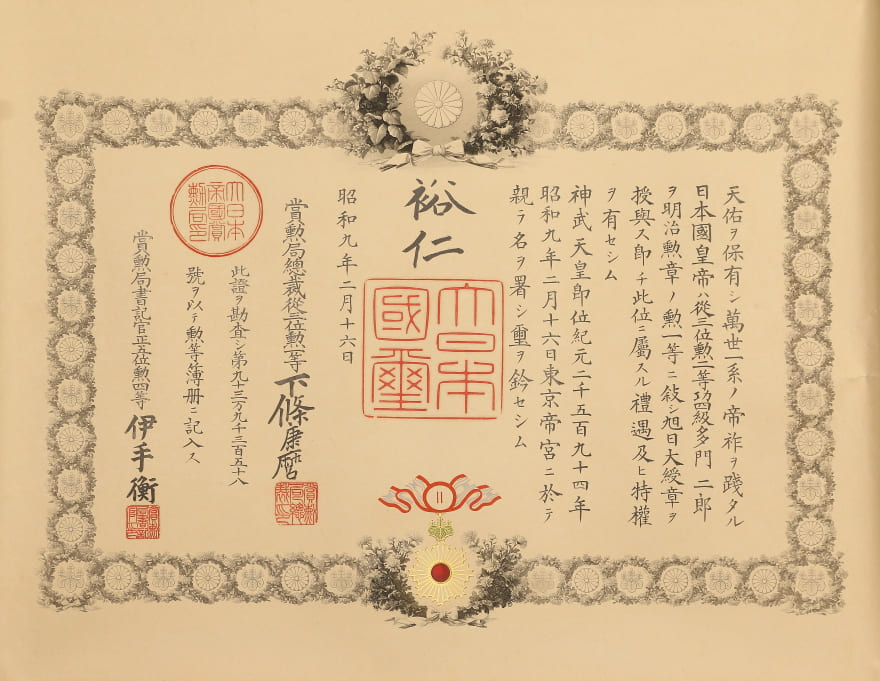 天佑ヲ保有シ萬世一系ノ帝祚ヲ踐タル
日本國皇帝ハ從三位勲二等功四級多門二郎
ヲ明治勲章ノ勲一等ニ敍シ旭日大綬章ヲ
授與ス即チ此位ニ屬スル禮遇及ヒ特權
ヲ有セシム
神武天皇即位紀元二千五百九十四年
昭和九年二月十六日東京帝宮ニ於テ
親ラ名ヲ署シ璽ヲ鈐セシム
裕仁
大日本
國璽
昭和九年二月十六日
賞勲局總裁從三位勲一等下條康麿
此證ヲ勘査シ第九十三万九千三百五十八
號ヲ以テ勲等簿册ニ記入ス
大日本
帝國賞
勲局印
賞勲局書記官正五位勲四等伊手衡